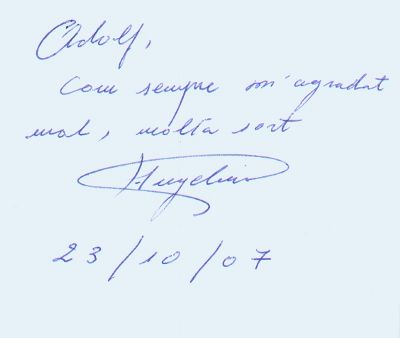 Adolf,
Com sempre m'agradat
mal, molta sort
23/10/07